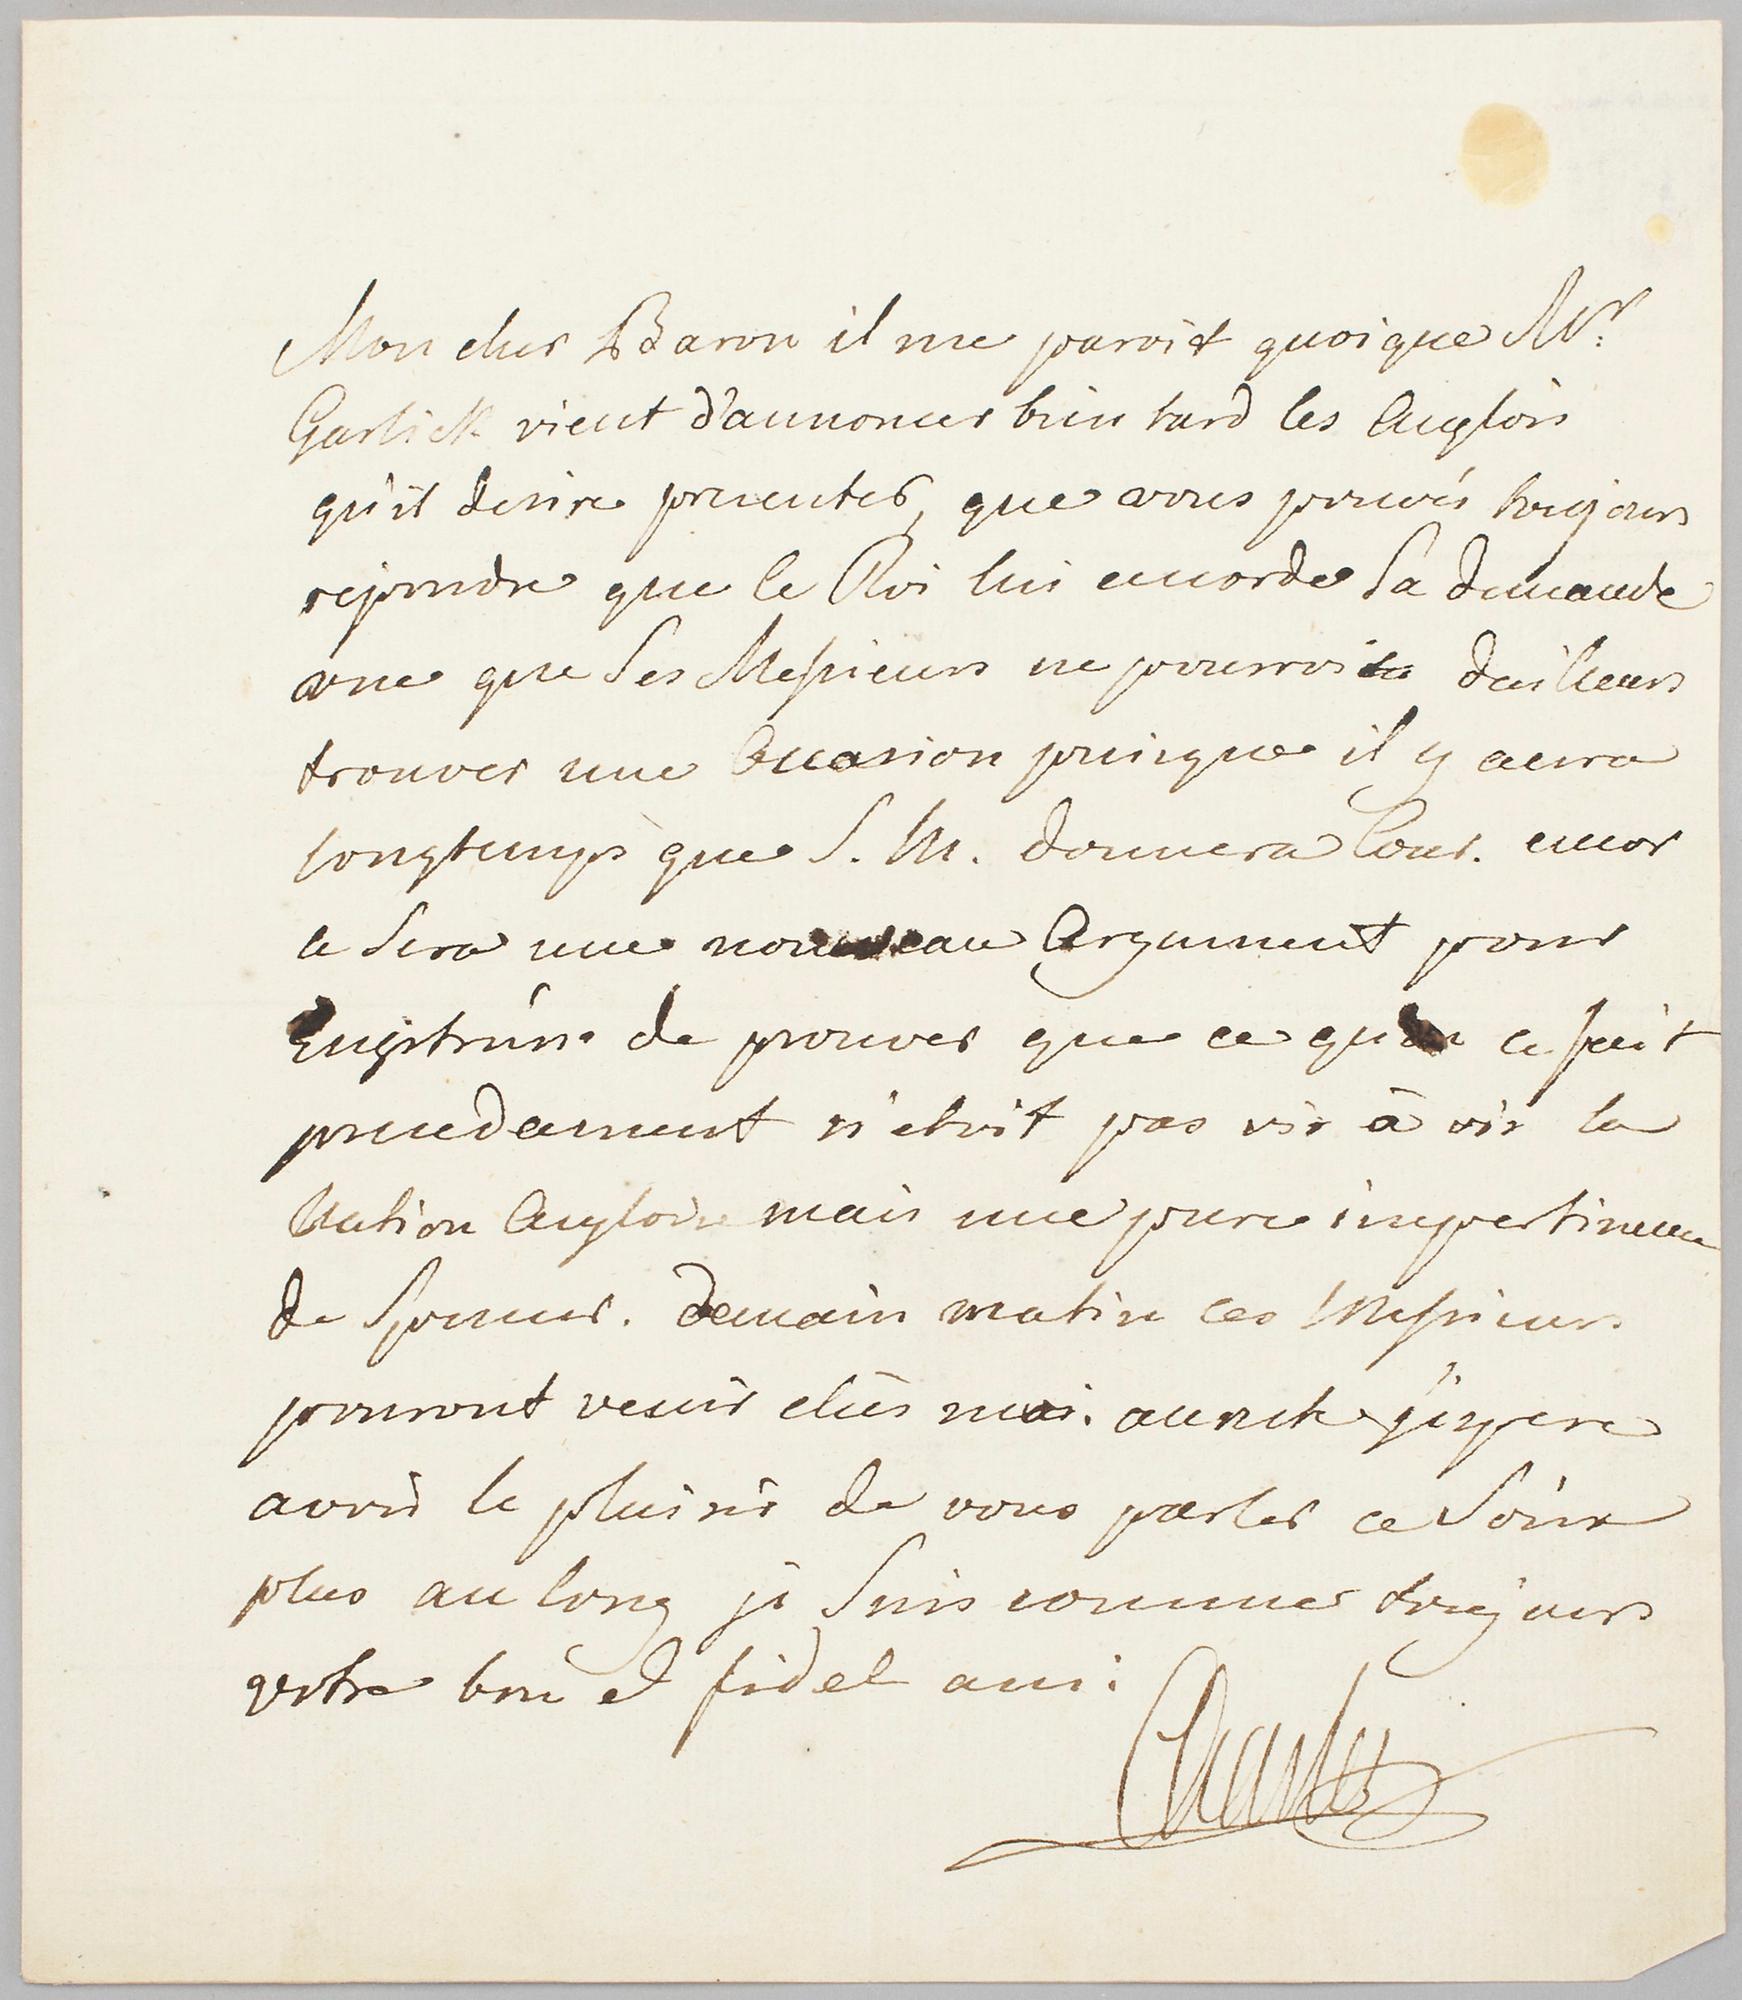 Mon cher Baron il me paroit quoique Mr:
Garlick vient d'annoncer bien tard les Anglois
qu'il desire presenter, que vous pouvés toujours
repondre que le Roi lui accorde Sa demande
vue que Ses Messieurs ne pourroit dailleurs
trouver une Occasion puisque il y aura
longtemps que S. M. donnera Cour. encor
ce Sera une nouveau Argument pour
de prouver que ce qu'on a fait
precedament n'etoit pas vis à vis la
Nation Angloise mais une pure impertinence
de Spencer. demain matin ces Messieurs
pouront venir chés moi. au reste j'espere
avoir le plaisir de vous parler ce Soir
plus au long je Suis comme toujours
votre bon et fidel ami:
Charles